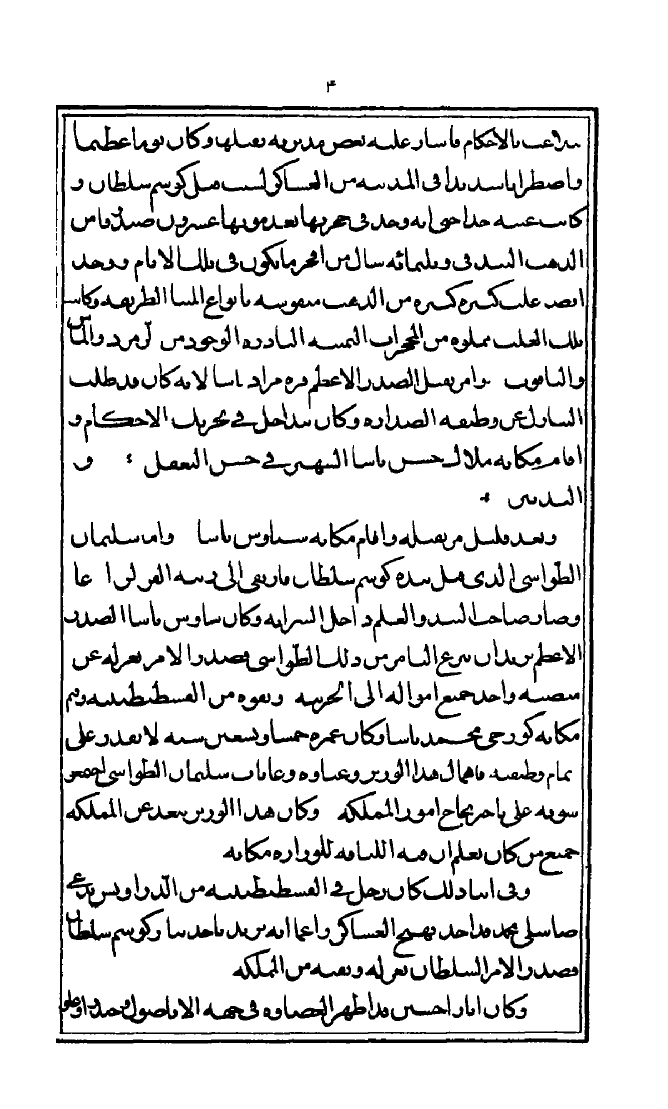 ٣
بالاحكام فاشار عليه بعض مدبريه بقتلها وكان يوما عظيما
واضطرابا شديدا في المدينه من العساكر لسبب قتل كوسم سلطان و
كانت غنيه جدا حتى انه وجد في حجرتها بعد موتها عشرون صندوقا من
الذهب البندقي وثلثمائه شال من افخر ما يكون في تلك الايام ووجد
ايضا علب كثيره كبيره من الذهب منقوشه بانواع المينا الظريفه وكانت
تلك العلب مملوه من الحجرات الثمينه النادره الوجود من زمرد والماس
والياقوت وامر بقتل الصدر الاعظم قره مراد باشا لانه كان قد طلب
التنازل عن وظيفه الصداره وكان يتداخل في تحريك الاحكام و
اقام مكانه ملاك حسن باشا الشهير في حسن التعقل و
التدبير
وبعد قليل من بقتله واقام مكانه سياوس باشا واما سليمان
الطواشي الذي قتل بيده كوسم سلطان فارتقى الى رتبه القزلر اغا
وصار صاحب اليد والقلم داخل السرايه وكان سياوس باشا الصدر
الاعظم يريد ان ينزع التامر من ذلك الطواشي فصدر الامر بعزله عن
منصبه واخذ جميع امواله الى الخزينه ونفوه من القسطنطينيه وقيم
مكانه كورجي محمد باشا وكان عمره خمسا وتسعين سنه لا يقدر على
تمام وظيفته فاهمال هذا الوزير وغباوه وغايات سليمان الطواشي اجتمعوا
سويه على تاخر نجاح امور المملكه وكان هذا الوزير يبعد عن المملكه
جميع من كان يعلم ان فيه اللياقه للوزاره مكانه
وفي اثنا ذلك كان رجل في القسطنطينيه من الدراويش يدعى
محمد قد اخذ يهيج العساكر زاعما انه يريد ياخذ بثار كوسم سلطان
فصدر الامر السلطان بعزله ونفيه من المملكه
وكان اباز احسين قد اظهر العصاوه في جهه الاناضول